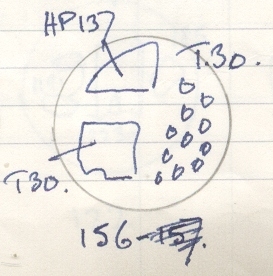 HP137
T.30.
T30.
156-